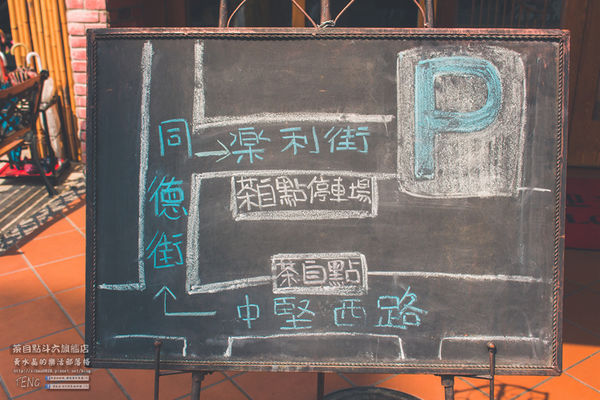 P
同德街
楽利街
茶自點停車場
茶自點
中堅西路
茶自點斗六旗艦店
黃水晶的樂活部落格
TENG